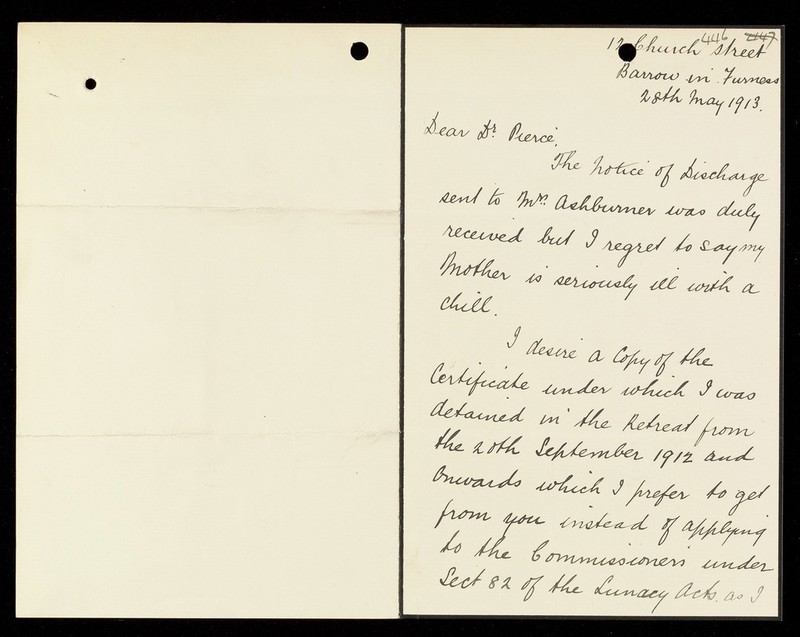 446 2147
12 Church Street
Barrow in Furness
28th May 1913.
Dear Dr. Pierce,
The notice of Discharge
sent to Mrs. Ashburner was duly
received but I regret to say my
Mother is seriously ill with a
chill.
I desire a Copy of the
Certificate under which I was
detained in the Retreat from
the 20th September 1912 and
Onwards which I prefer to get
from you instead of applying
to the Commissioners under
Sect 82 of the Lunacy Acts. as I